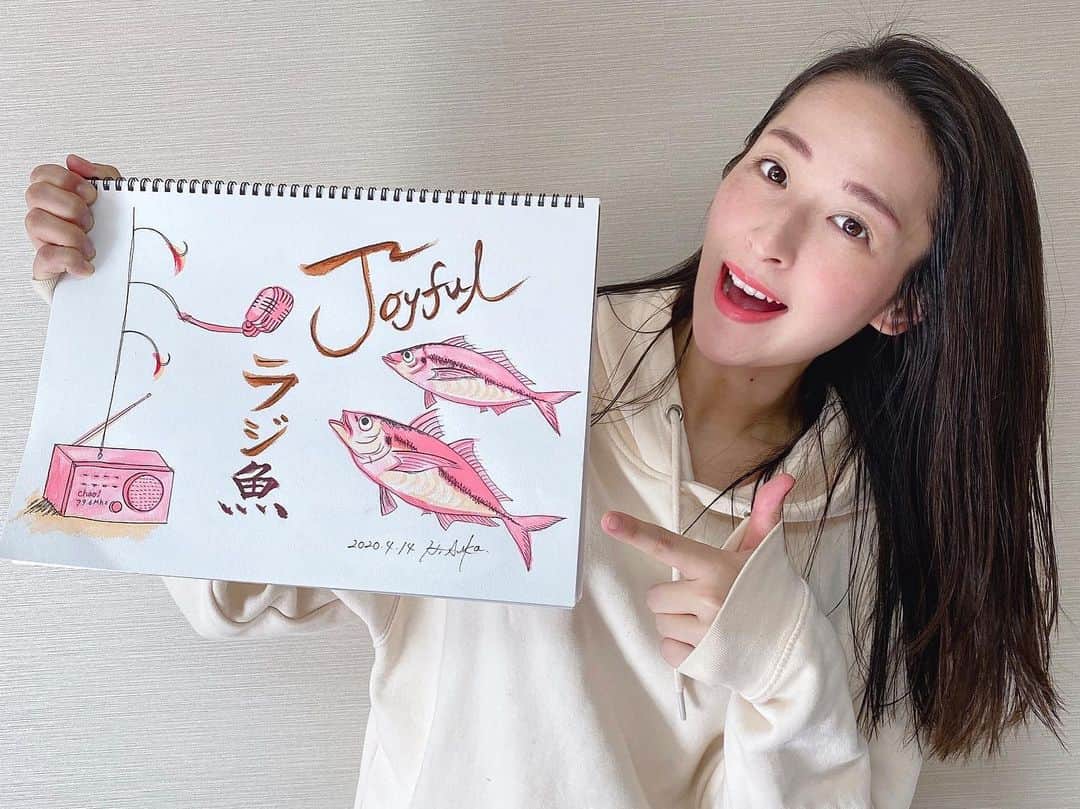 Joyful
ラジ魚
Chao!
79.6Mhz
2020.4.14